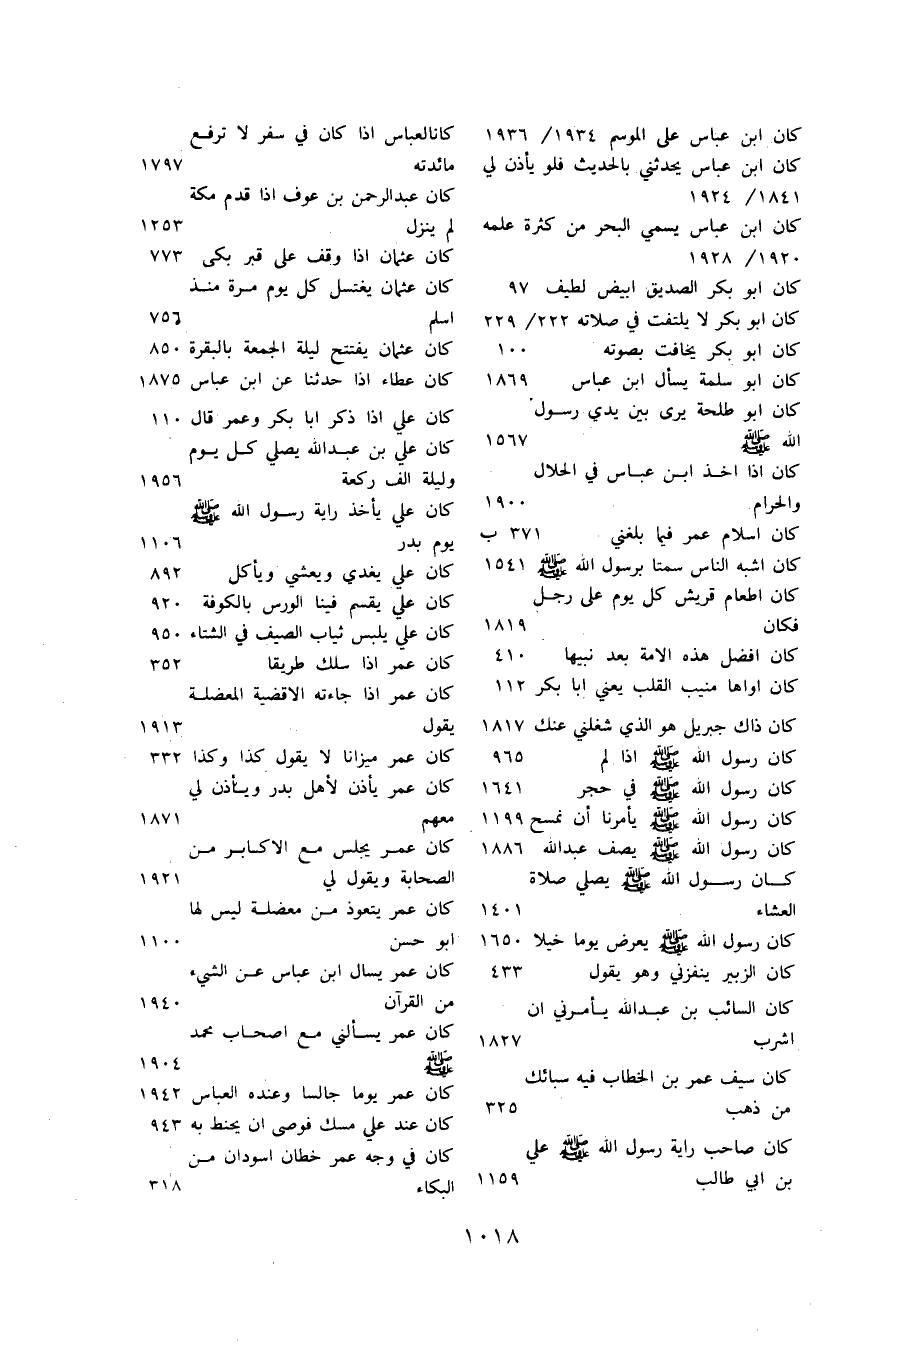 كان ابن عباس على الموسم ١٩٣٤/ ١٩٣٦
كان ابن عباس يحدثني بالحديث فلو يأذن لي
١٨٤١/ ١٩٢٤
كان ابن عباس يسمي البحر من كثرة علمه
١٩٢٠/ ١٩٢٨
كان ابو بكر الصديق ابيض لطيف ٩٧
كان ابو بكر لا يلتفت في صلاته ٢٢٢/ ٢٢٩
كان ابو بكر يخافت بصوته ١٠٠
كان ابو سلمة يسأل ابن عباس ١٨٦٩
كان ابو طلحة يرى بين يدي رسول
الله ﷺ ١٥٦٧
كان اذا اخذ ابن عباس في الحلال
والحرام ١٩٠٠
كان اسلام عمر فيما بلغني ٣٧١ ب
كان اشبه الناس سمتا برسول الله ﷺ ١٥٤١
كان اطعام قريش كل يوم على رجل
فكان ١٨١٩
كان افضل هذه الامة بعد نبيها ٤١٠
كان اواها منيب القلب يعني ابا بكر ١١٢
كان ذاك جبريل هو الذي شغلني عنك ١٨١٧
كان رسول الله ﷺ اذا لم ٩٦٥
كان رسول الله ﷺ في حجر ١٦٤١
كان رسول الله ﷺ يأمرنا أن نمسح ١١٩٩
كان رسول الله ﷺ يصف عبدالله ١٨٨٦
كان رسول الله ﷺ يصلي صلاة
العشاء ١٤٠١
كان رسول الله ﷺ يعرض يوما خيلا ١٦٥٠
كان الزبير ينفزني وهو يقول ٤٣٣
كان السائب بن عبدالله يأمرني ان
اشرب ١٨٢٧
كان سيف عمر بن الخطاب فيه سبائك
من ذهب ٣٢٥
كان صاحب راية رسول الله ﷺ علي
بن ابي طالب ١١٥٩
كانالعباس اذا كان في سفر لا ترفع
مائدته ١٧٩٧
كان عبدالرحمن بن عوف اذا قدم مكة
لم ينزل ١٢٥٣
كان عثمان اذا وقف على قبر بكى ٧٧٣
كان عثمان يغتسل كل يوم مرة منذ
اسلم ٧٥٦
كان عثمان يفتتح ليلة الجمعة بالبقرة ٨٥٠
كان عطاء اذا حدثنا عن ابن عباس ١٨٧٥
كان علي اذا ذكر ابا بكر وعمر قال ١١٠
كان علي بن عبدالله يصلي كل يوم
وليلة الف ركعة ١٩٥٦
كان علي يأخذ راية رسول الله ﷺ
يوم بدر ١١٠٦
كان علي يغدي ويعشي ويأكل ٨٩٢
كان علي يقسم فينا الورس بالكوفة ٩٢٠
كان علي يلبس ثياب الصيف في الشتاء ٩٥٠
كان عمر اذا سلك طريقا ٣٥٢
كان عمر اذا جاءته الاقضية المعضلة
يقول ١٩١٣
كان عمر ميزانا لا يقول كذا وكذا ٣٣٢
كان عمر يأذن لأهل بدر ويأذن لي
معهم ١٨٧١
كان عمر يجلس مع الاكابر من
الصحابة ويقول لي ١٩٢١
كان عمر يتعوذ من معضلة ليس لها
ابو حسن ١١٠٠
كان عمر يسال ابن عباس عن الشيء
من القرآن ١٩٤٠
كان عمر يسألني مع اصحاب محمد
ﷺ ١٩٠٤
كان عمر يوما جالسا وعنده العباس ١٩٤٢
كان عند علي مسك فوصى ان يحنط به ٩٤٣
كان في وجه عمر خطان اسودان من
البكاء ٣١٨
١٠١٨